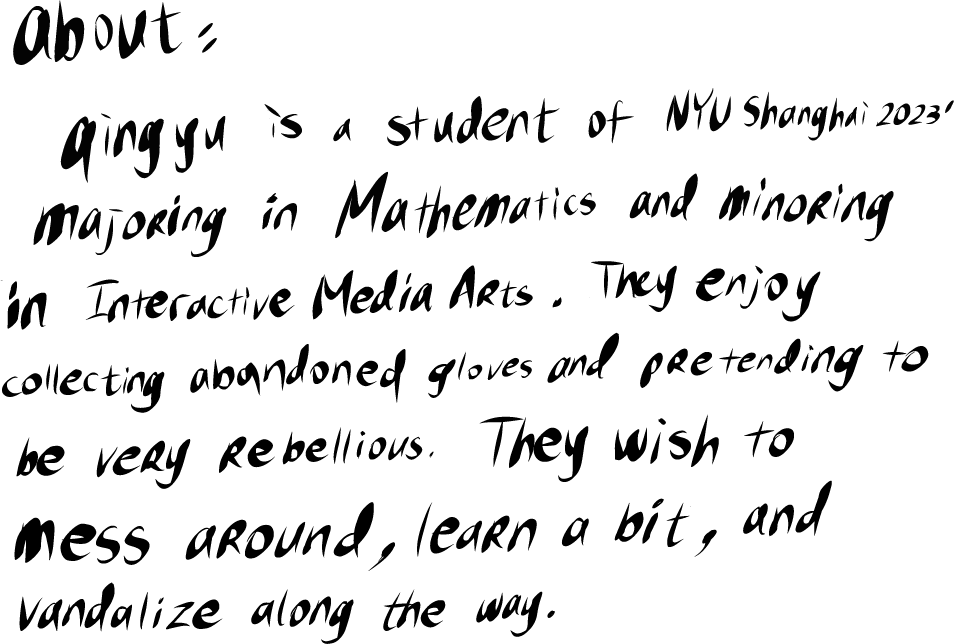 about:
qingyu is a student of NYU Shanghai 2023'
majoring in Mathematics and minoring
in Interactive Media Arts. They enjoy
collecting abandoned gloves and pretending to
be very rebellious. They wish to
mess around, learn a bit, and
vandalize along the way.